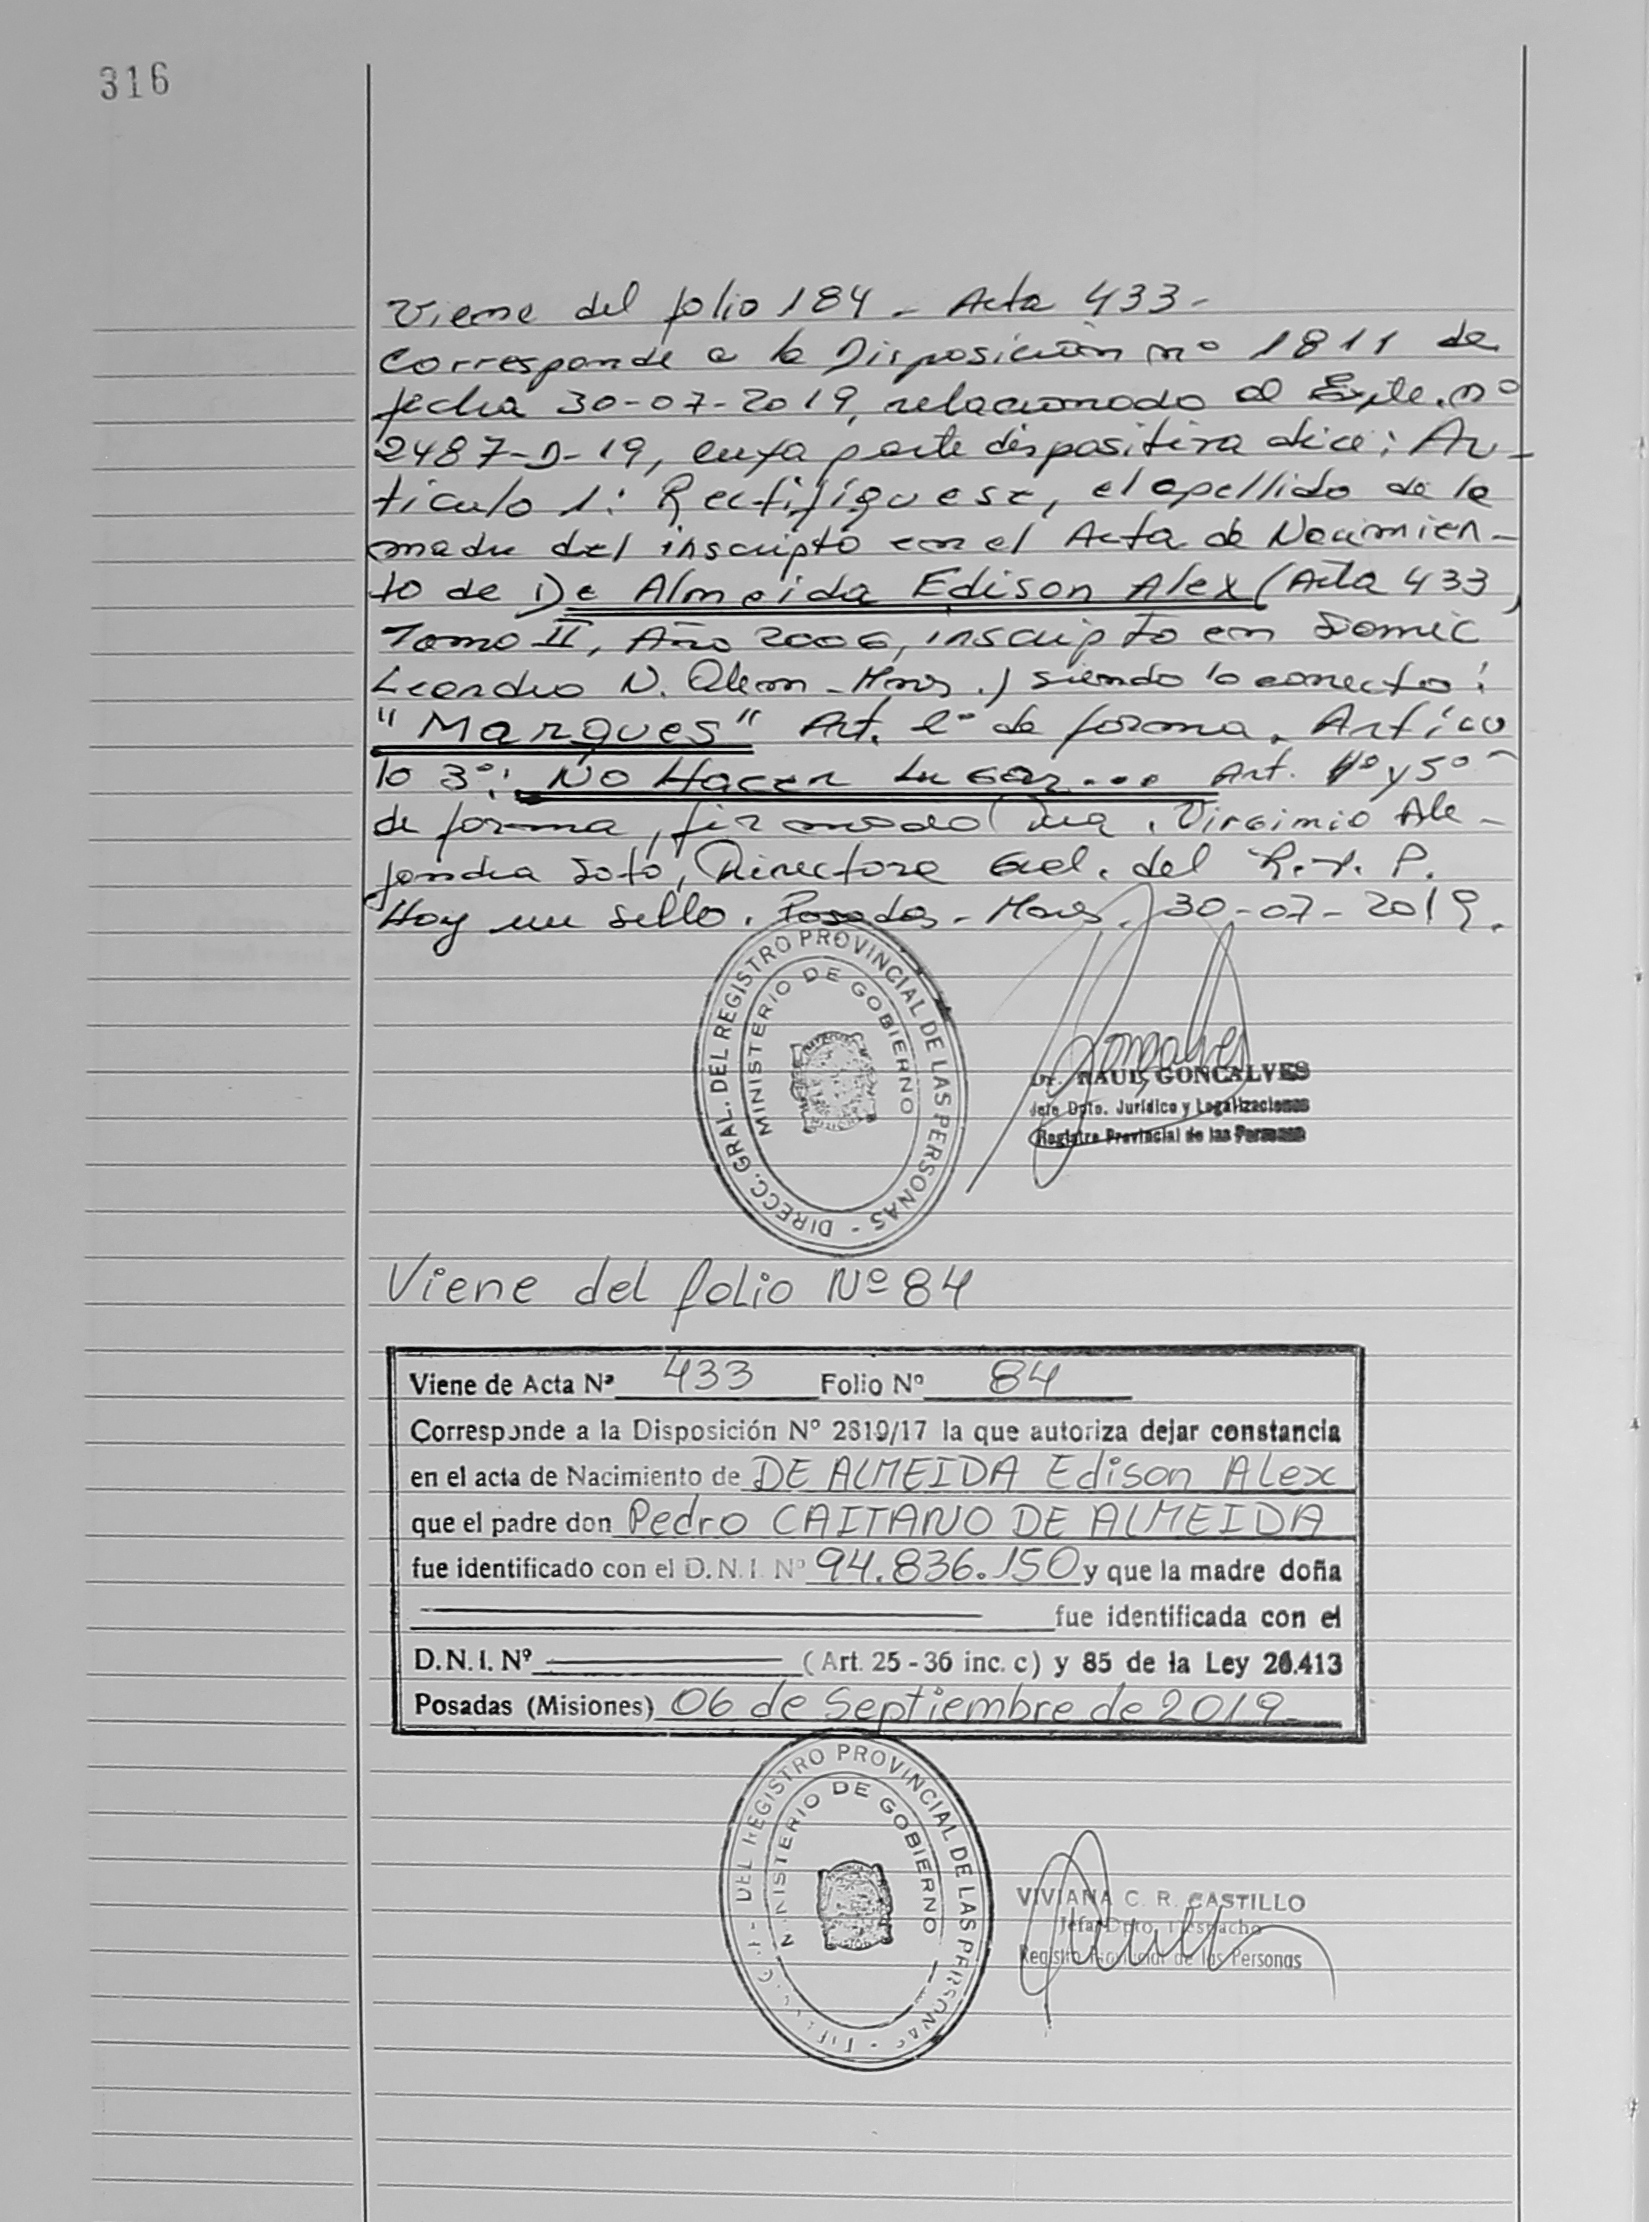 316
Viene del folio 184 - Acta 433 -
Corresponde a la Disposición nº 1811 de
fecha 30-07-2019, relacionado al Expte. nº
2487-D-19, cuya parte dispositiva dice: Ar-
tículo 1: Rectifíquese, el apellido de la
madre del inscripto en el Acta de Nacimien-
to de De Almeida Edison Alex (Acta 433
Tomo II, Año 2006, inscripto en
Leandro N. Alem - Mnes.) siendo lo correcto:
"Marques" Art. 2º de forma. Artícu
lo 3º: No Hacer Lugar... Art. 4º y 5º
de forma, firmado Dra. Virginia Ale-
jandra Soto, Directora Gral. del R.P.P.
Hay un sello. Posadas - Mnes. 30-07-2019.
DIRECC. GRAL. DEL REGISTRO PROVINCIAL DE LAS PERSONAS -
MINISTERIO DE GOBIERNO
Gonçalves
Dr. RAUL GONCALVES
Jefe Dpto. Jurídico y Legalizaciones
Registro Provincial de las Personas
Viene del folio Nº 84
Viene de Acta Nº 433 Folio Nº 84
Corresponde a la Disposición Nº 2819/17 la que autoriza dejar constancia
en el acta de Nacimiento de DE ALMEIDA Edison Alex
que el padre don Pedro CAITANO DE ALMEIDA
fue identificado con el D.N.I. Nº 94.836.150 y que la madre doña
fue identificada con el
D.N.I. Nº (Art. 25 - 36 inc. c) y 85 de la Ley 26.413
Posadas (Misiones) 06 de Septiembre de 2019
DEL REGISTRO PROVINCIAL DE LAS PERSONAS -
MINISTERIO DE GOBIERNO
VIVIANA C. R. CASTILLO
Jefa Dpto. Despacho
Registro Provincial de las Personas